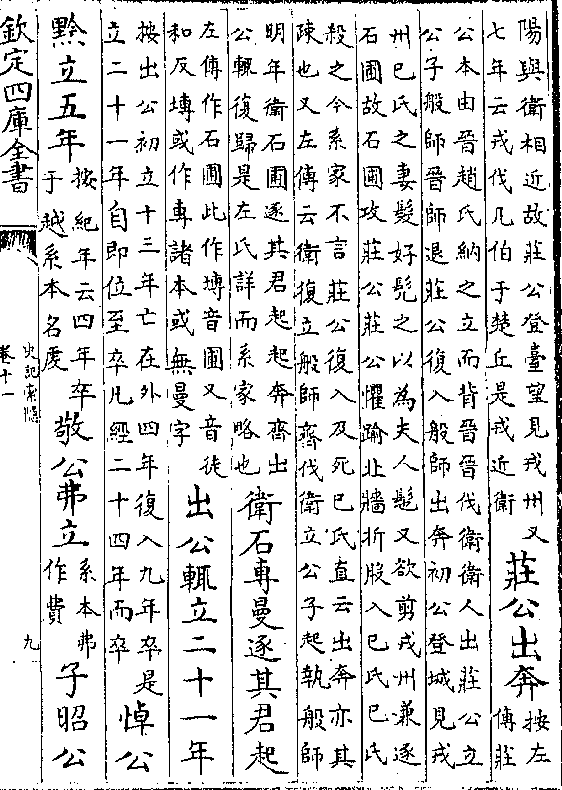 陽與衛相近故莊公登臺望見戎州又
七年云戎伐凡伯于楚丘是戎近衛
莊公出奔
按左
傳莊
公本由晉趙氏納之立而背晉晉伐衛衛人出莊公立
公子般師晉師退莊公復入般師出奔初公登城見戎
州巳氏之妻髮好髠之以為夫人髢又欲剪戎州兼逐
石圃故石圃攻莊公莊公懼踰北牆折股入巳氏巳氏
殺之今系家不言莊公復入及死巳氏直云出奔亦其
踈也又左傳云衛復立般師齊伐衛立公子起執般師
明年衛石圃逐其君起起奔齊出
公輒復歸是左氏詳而系家略也
衛石專曼逐其君起
左傳作石圃此作塼音圃又音徒
和反塼或作專諸本或無曼字
出公輒立二十一年
按出公初立十三年亡在外四年復入九年卒是
立二十一年自即位至卒凡經二十四年而卒
悼公
黔立五年
按紀年云四年卒
于越系本名虔
敬公弗立
系本弗
作費
子昭公
欽定四庫全書
史記索隱
卷十一
九